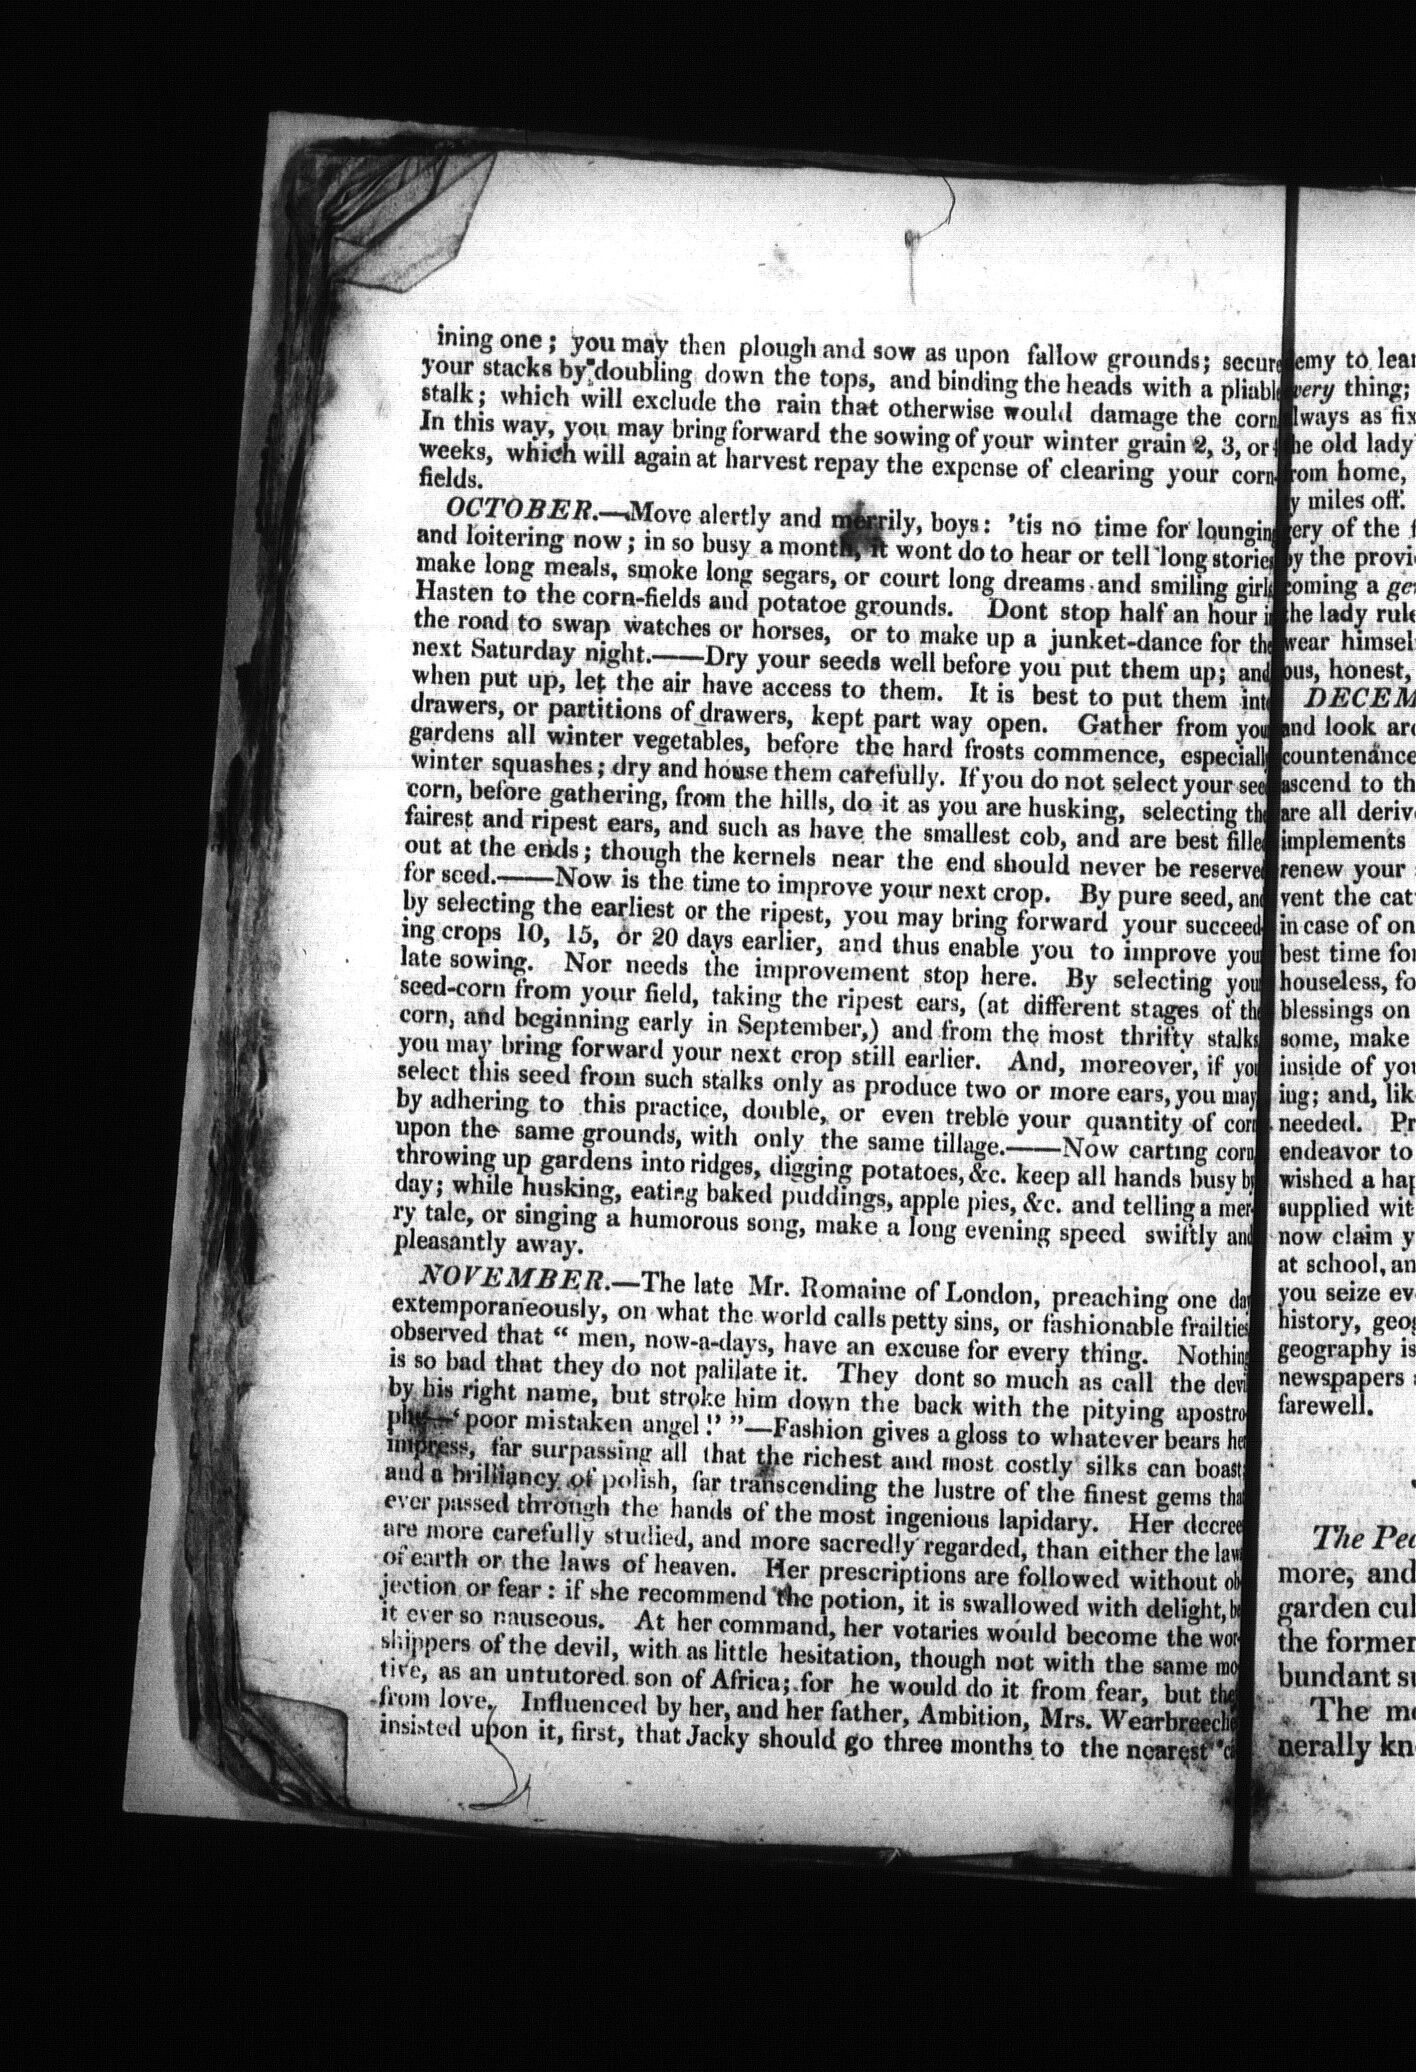 ining one; you may then plough and sow as upon fallow grounds; secure
your stacks by doubling down the tops, and binding the heads with a pliable
stalk; which will exclude the rain that otherwise would damage the corn
In this way, you may bring forward the sowing of your winter grain 2, 3, or
weeks, which will again at harvest repay the expense of clearing your corn-
fields.
OCTOBER.—Move alertly and merrily, boys: 'tis no time for lounging
and loitering now; in so busy a month, it wont do to hear or tell long stories
make long meals, smoke long segars, or court long dreams and smiling girls
Hasten to the corn-fields and potatoe grounds. Dont stop half an hour
the road to swap watches or horses, or to make up a junket-dance for the
next Saturday night.——Dry your seeds well before you put them up; and
when put up, let the air have access to them. It is best to put them int
drawers, or partitions of drawers, kept part way open. Gather from you
gardens all winter vegetables, before the hard frosts commence, especiall
winter squashes; dry and house them carefully. If you do not select your see
corn, before gathering, from the hills, do it as you are husking, selecting the
fairest and ripest ears, and such as have the smallest cob, and are best fille
out at the ends; though the kernels near the end should never be reserve
for seed.——Now is the time to improve your next crop. By pure seed, and
by selecting the earliest or the ripest, you may bring forward your succeed-
ing crops 10, 15, or 20 days earlier, and thus enable you to improve you
late sowing. Nor needs the improvement stop here. By selecting you
seed-corn from your field, taking the ripest ears, (at different stages of the
corn, and beginning early in September,) and from the most thrifty stalks
you may bring forward your next crop still earlier. And, moreover, if you
select this seed from such stalks only as produce two or more ears, you may
by adhering to this practice, double, or even treble your quantity of corn
upon the same grounds, with only the same tillage.——Now carting corn,
throwing up gardens into ridges, digging potatoes, &c. keep all hands busy by
day; while husking, eating baked puddings, apple pies, &c. and telling a mer-
ry tale, or singing a humorous song, make a long evening speed swiftly and
pleasantly away.
NOVEMBER.—The late Mr. Romaine of London, preaching one day
extemporaneously, on what the world calls petty sins, or fashionable frailties
observed that " men, now-a-days, have an excuse for every thing. Nothing
is so bad that they do not palilate it. They dont so much as call the devi
by his right name, but stroke him down the back with the pitying apostro-
phe—'poor mistaken angel!' "—Fashion gives a gloss to whatever bears her
impress, far surpassing all that the richest and most costly silks can boast;
and a brilliancy of polish, far transcending the lustre of the finest gems that
ever passed through the hands of the most ingenious lapidary. Her decree
are more carefully studied, and more sacredly regarded, than either the law
of earth or the laws of heaven. Her prescriptions are followed without ob-
jection or fear: if she recommend the potion, it is swallowed with delight, be
it ever so nauseous. At her command, her votaries would become the wor-
shippers of the devil, with as little hesitation, though not with the same mo-
tive, as an untutored son of Africa; for he would do it from fear, but they
from love. Influenced by her, and her father, Ambition, Mrs. Wearbreeche
insisted upon it, first, that Jacky should go three months to the nearest
emy to lear
very thing;
lways as fix
he old lady
rom home,
y miles off.
ery of the f
by the provi
coming a ge
the lady rule
wear himsel
ous, honest,
DECEM
and look aro
countenance
ascend to th
are all deriv
implements
renew your
vent the cat
in case of on
best time for
houseless, fo
blessings on
some, make
inside of you
ing; and, lik
needed. Pr
endeavor to
wished a hap
supplied wit
now claim y
at school, an
you seize ev
history, geog
geography is
newspapers
farewell.
The Pea
more, and
garden cul
the former
bundant su
The mo
nerally kn